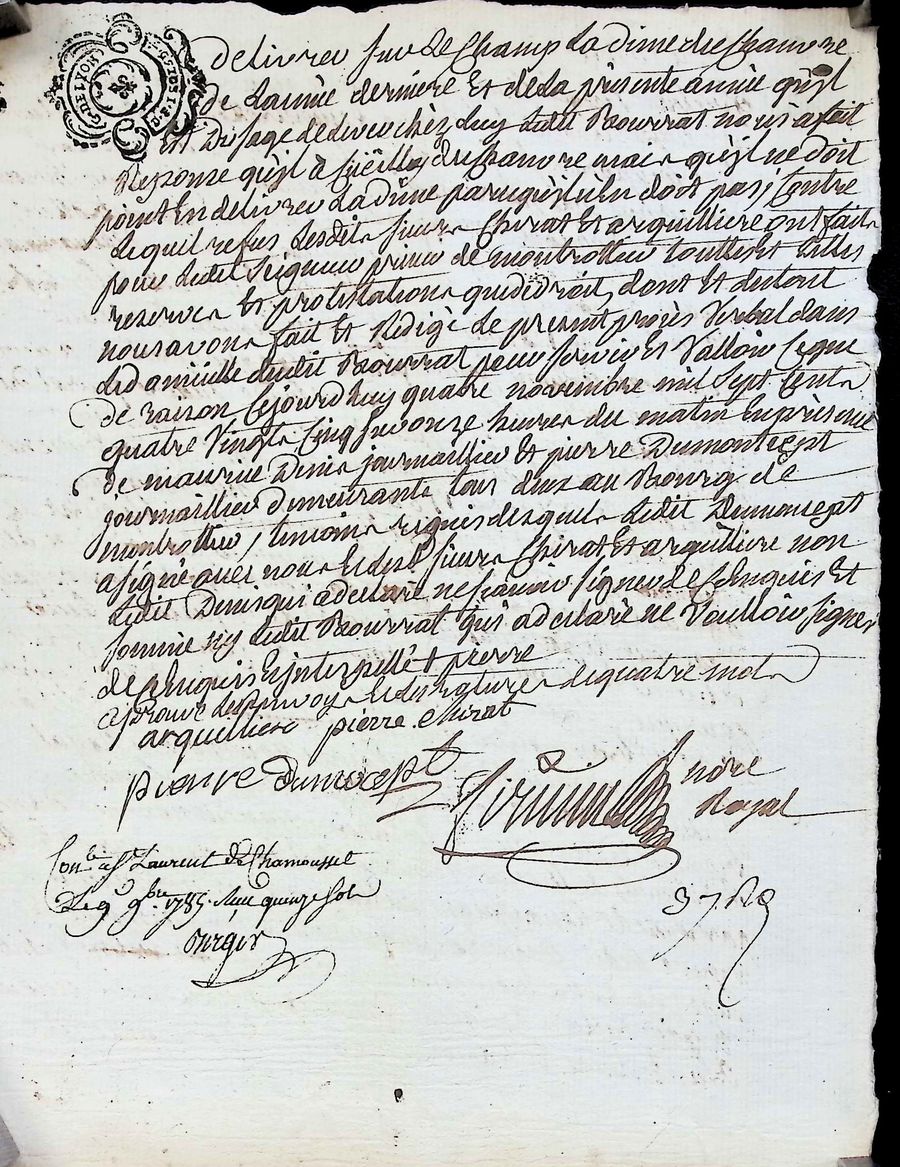 delivrer sur Le Champ La dime du Chanvre
de Lannée derniere Et de La presente année qu'jl
Est Dusage de delivrer chéz Luy Ledit Bourrat nous a fait
Reponse qu'jl à Cüeilly du Chanvre mais qu'jl ne doit
point En delivrer La dime parcequ'jl n'En doit pas, Contre
Lequel refus Lesdits sieurs Chirat Et arquilliere ont fait
pour Ledit Seigneur prieur de montrottier touttes Et telles
reserves Et protestations que de droit, dont Et du tout
nous avons fait Et Redigé Le present procès Verbal dans
Le domicille dudit Bourrat pour servir Et Valloir Ce que
de raison Cejourdhuy quatre novembre mil Sept Cents
quatre Vingts Cinq sur onze heures du matin En presence
de maurice Denis journaillier Et pierre Dumontcept
journaillier demeurants tous deux au Bourg de
montrottier, temoins requis desquels Ledit Dumoncept
a signé avec nous Et Lesd. sieurs Chirat Et arquilliere non
Ledit Denis qui a declaré ne sçavoir signer de Ce Enquis Et
sommé ny Ledit Bourrat qui a declaré ne Voulloir signer
de ce Enquis Et jnterpellé &. pierre
approuvé Les renvoys Et Les ratures de quatre mots
arquilliere pierre Chirat
pierre dumocept
notre
Royal
Con.lé a St Laurent de Chamousset
Le 9 9bre 1785. Reçu quinze sols
37